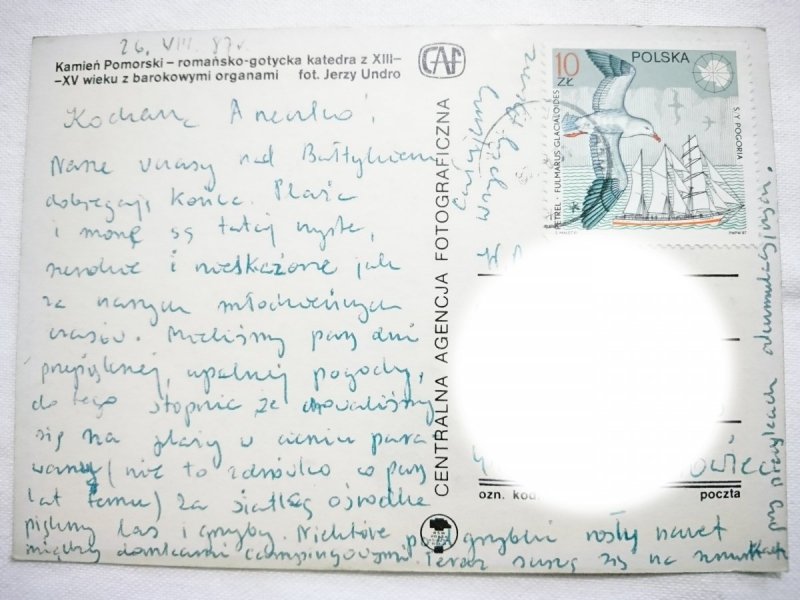 26. VIII. 87r.
Kamień Pomorski – romańsko-gotycka katedra z XIII–
–XV wieku z barokowymi organami fot. Jerzy Undro
CAF
Kochana
Nasze wczasy nad Bałtykiem
dobiegają końca. Plaże
i morze są tutaj czyste,
szerokie i nieskażone jak
za naszych młodzieńczych
czasów. Mieliśmy parę dni
przepięknej, upalnej pogody,
do tego stopnia że chowaliśmy
się na plaży w cieniu para
wanu (nie to co parę
lat temu) Za siatką ośrodka
piękny las i grzyby. Niektóre podgrzybki rosły nawet
między domkami campingowymi. Teraz suszą się na sznurkach
przy
CENTRALNA AGENCJA FOTOGRAFICZNA
Całujemy
Wszyscy
POLSKA
10
ZŁ
PETREL · FULMARUS GLACIALOIDES
S/Y POGORIA
ozn. kod.
poczta